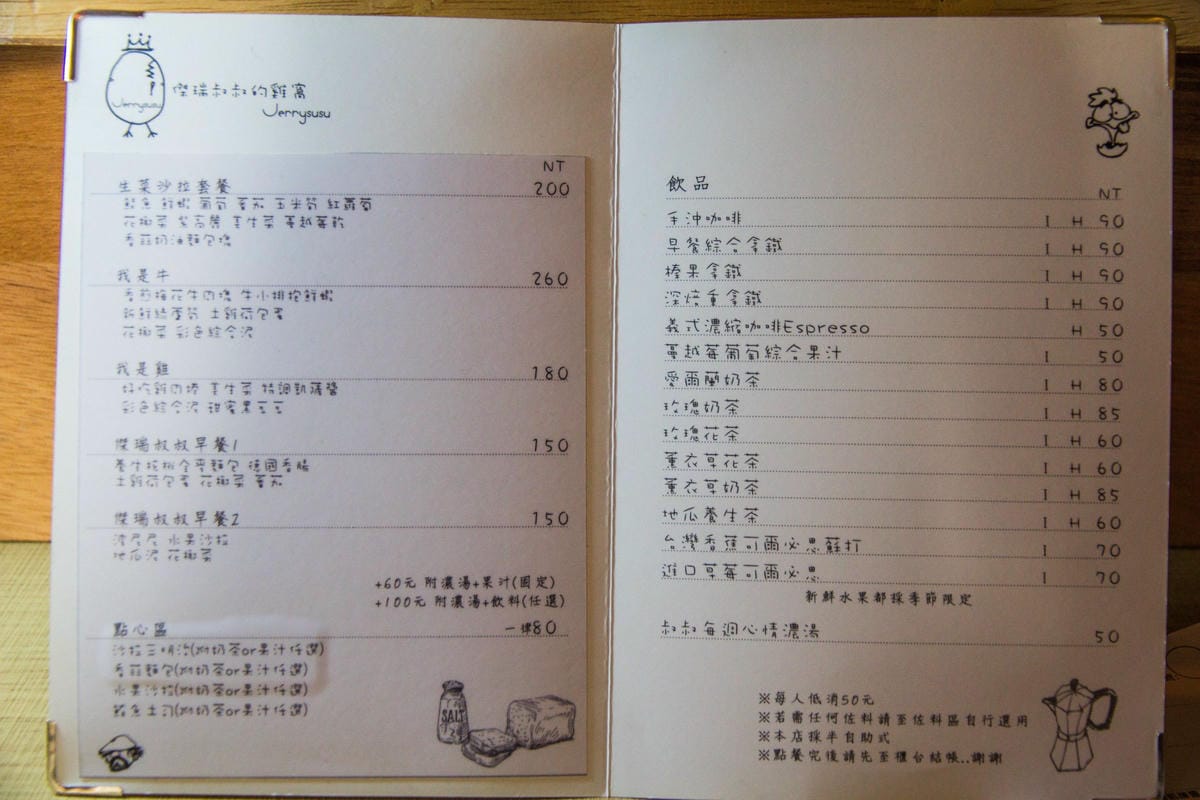 Jerrysusu
傑瑞叔叔的雞窩
Jerrysusu
NT
生菜沙拉套餐 200
鮭魚 鮮蝦 葡萄 蕃茄 玉米筍 紅蘿蔔
花椰菜 紫高麗 美生菜 蔓越莓乾
香蒜奶油麵包塊
我是牛 260
香煎梅花牛肉塊 牛小排捲鮮蝦
新鮮綠蘆筍 土雞荷包蛋
花椰菜 彩色綜合泥
我是雞 180
好吃雞肉捲 美生菜 特調凱薩醬
彩色綜合泥 甜蜜黑豆豆
傑瑞叔叔早餐1 150
養生核桃全麥麵包 德國香腸
土雞荷包蛋 花椰菜 蕃茄
傑瑞叔叔早餐2 150
水果沙拉
地瓜泥 花椰菜
+60元 附濃湯+果汁(固定)
+100元 附濃湯+飲料(任選)
點心區 一律80
沙拉三明治(附奶茶or果汁任選)
香蒜麵包(附奶茶or果汁任選)
水果沙拉(附奶茶or果汁任選)
鮪魚土司(附奶茶or果汁任選)
SALT
飲品
NT
手沖咖啡 I H 90
早餐綜合拿鐵 I H 90
榛果拿鐵 I H 90
深焙重拿鐵 I H 90
義式濃縮咖啡Espresso H 50
蔓越莓葡萄綜合果汁 I 50
愛爾蘭奶茶 I H 80
玫瑰奶茶 I H 85
玫瑰花茶 I H 60
薰衣草花茶 I H 60
薰衣草奶茶 I H 85
地瓜養生茶 I H 60
台灣香蕉可爾必思蘇打 I 70
進口草莓可爾必思 I 70
新鮮水果都採季節限定
叔叔每週心情濃湯 50
※每人低消50元
※若需任何佐料請至佐料區自行選用
※本店採半自助式
※點餐完後請先至櫃台結帳..謝謝